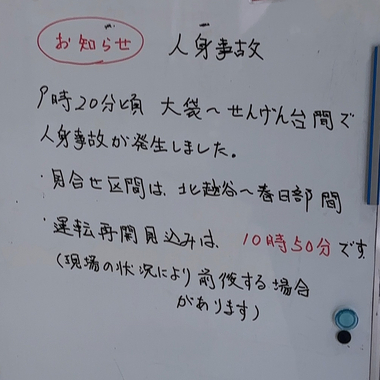 お知らせ 人身事故
9時20分頃 大袋〜せんげん台間で
人身事故が発生しました。
・見合せ区間は、北越谷〜春日部間
・運転再開見込みは、10時50分です
(現場の状況により前後する場合
があります)